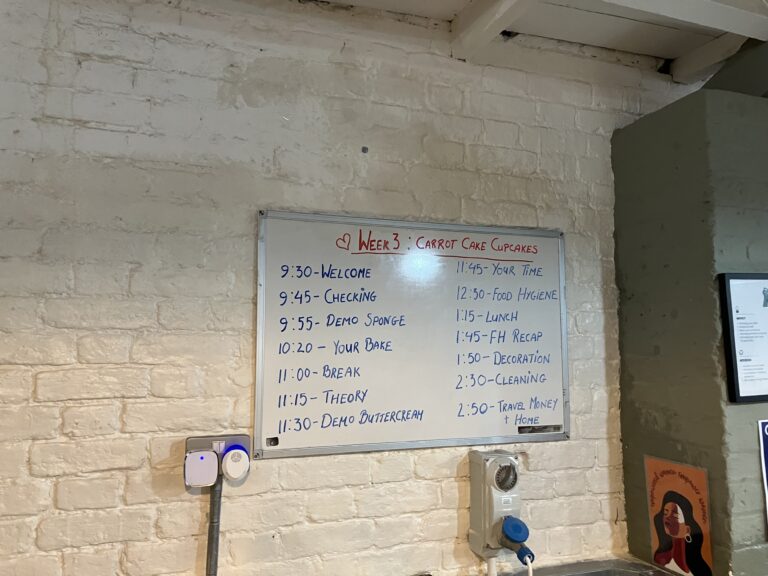 ♡ WEEK 3 : CARROT CAKE CUPCAKES
9:30 - WELCOME
9:45 - CHECKING
9:55 - DEMO SPONGE
10:20 - YOUR BAKE
11:00 - BREAK
11:15 - THEORY
11:30 - DEMO BUTTERCREAM
11:45 - YOUR TIME
12:50 - FOOD HYGIENE
1:15 - LUNCH
1:45 - FH RECAP
1:50 - DECORATION
2:30 - CLEANING
2:50 - TRAVEL MONEY
+ HOME